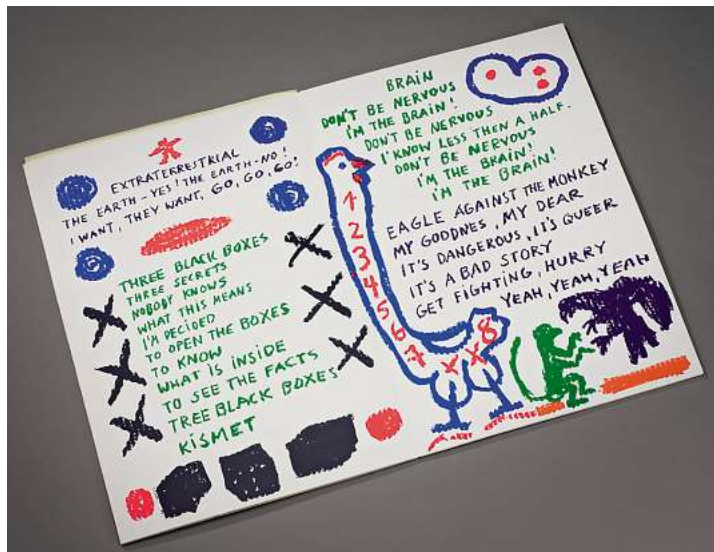 EXTRATERRESTRIAL
THE EARTH - YES! THE EARTH - NO!
I WANT, THEY WANT, GO, GO, GO!
THREE BLACK BOXES
THREE SECRETS
NOBODY KNOWS
WHAT THIS MEANS
I'M DECIDED
TO OPEN THE BOXES
TO KNOW
WHAT IS INSIDE
TO SEE THE FACTS
TREE BLACK BOXES
KISMET
BRAIN
DON'T BE NERVOUS
I'M THE BRAIN!
DON'T BE NERVOUS
I KNOW LESS THEN A HALF.
DON'T BE NERVOUS
I'M THE BRAIN!
I'M THE BRAIN!
1
2
3
4
5
6
7
X X 8
EAGLE AGAINST THE MONKEY
MY GOODNES, MY DEAR
IT'S DANGEROUS, IT'S QUEER
IT'S A BAD STORY
GET FIGHTING, HURRY
YEAH, YEAH, YEAH